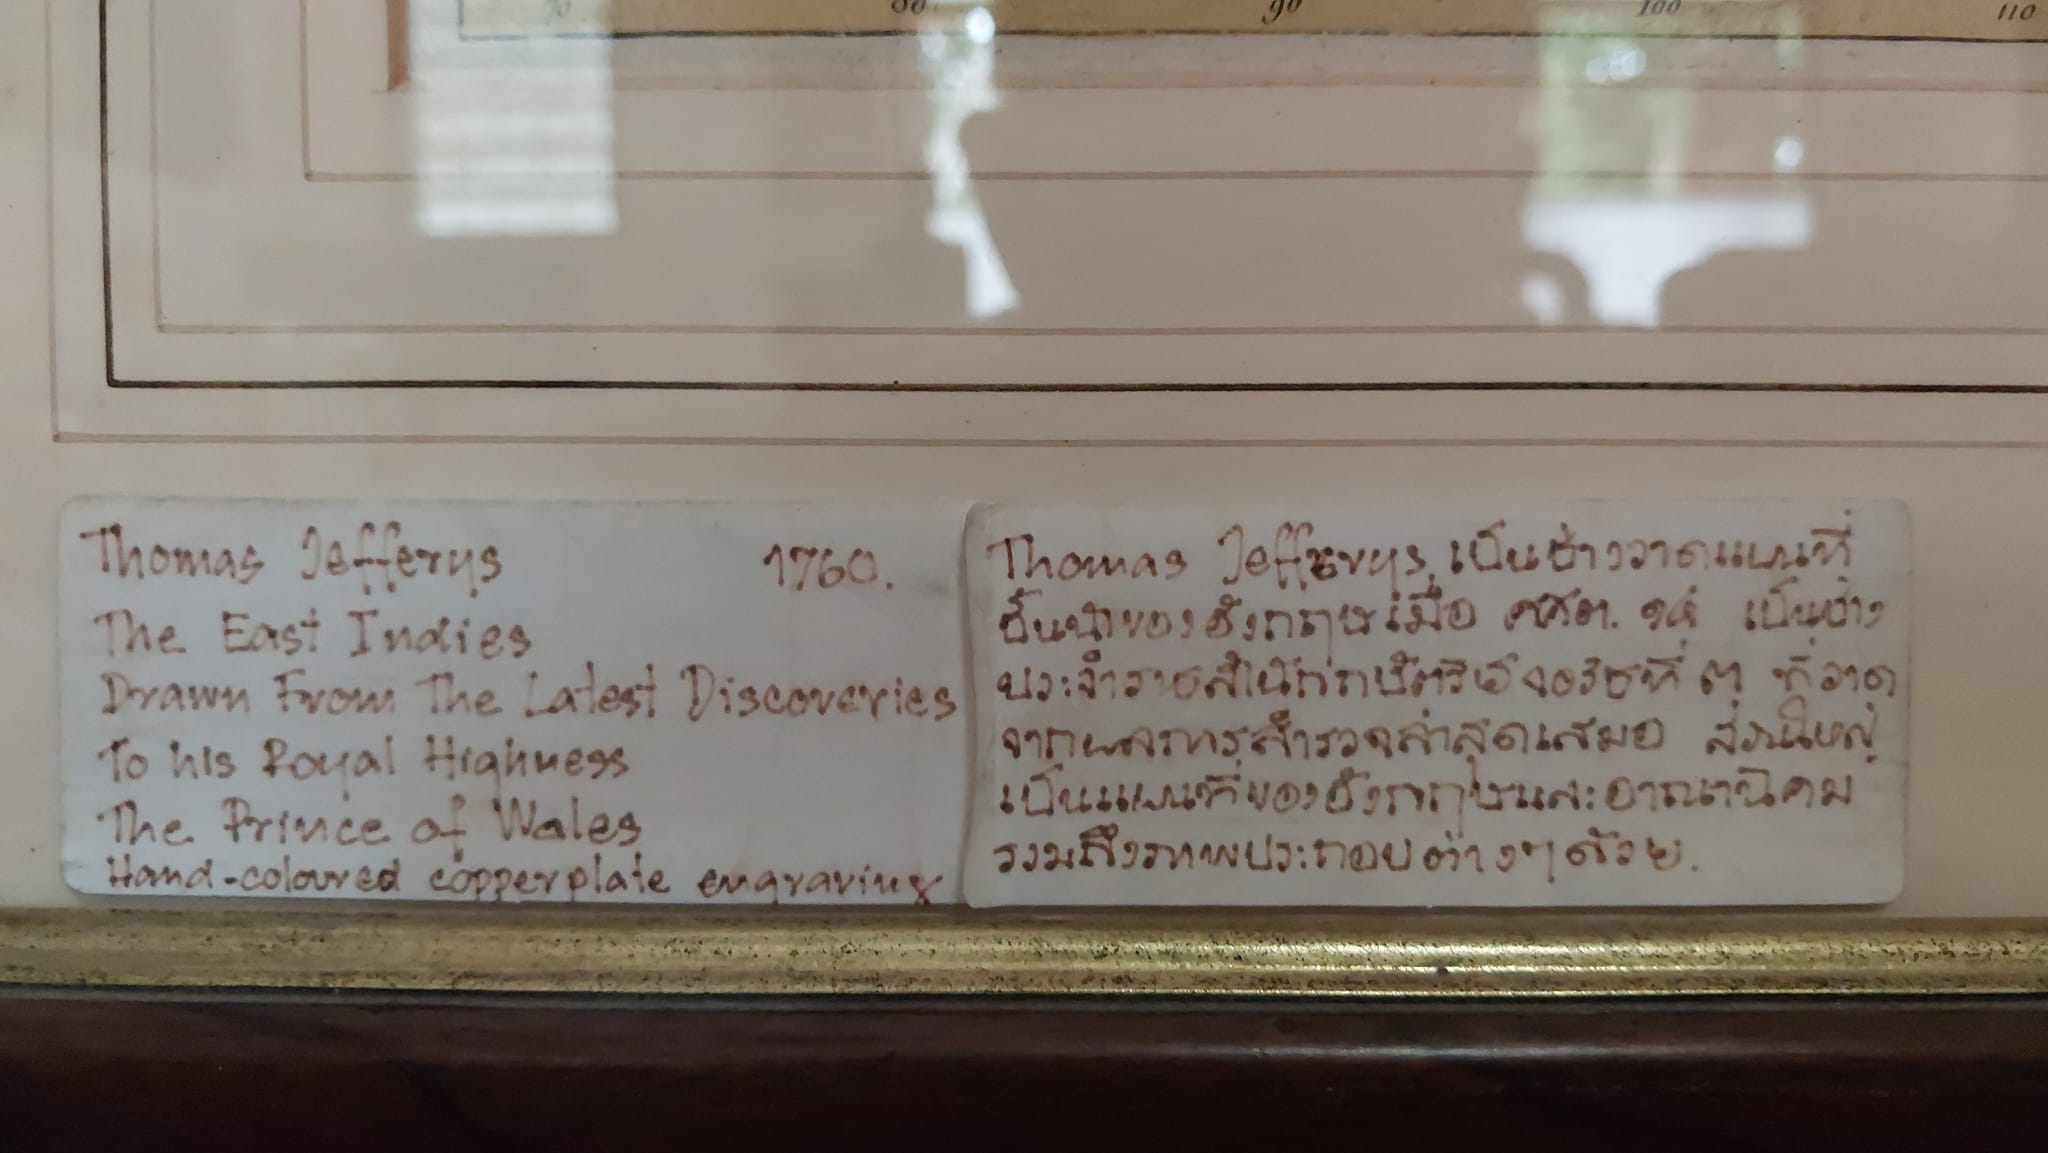 70 80 90 100 110
Thomas Jefferys 1760.
The East Indies
Drawn From The Latest Discoveries
To his Royal Highness
The Prince of Wales
Hand-coloured copperplate engraving
Thomas Jefferys เป็นช่างวาดแผนที่
ชั้นนำของอังกฤษเมื่อ ศศต. ๑๘ เป็นช่าง
ประจำราชสำนักกษัตริย์จอร์ชที่ ๓ ที่วาด
จากผลการสำรวจล่าสุดเสมอ ส่วนใหญ่
เป็นแผนที่ของอังกฤษและอาณานิคม
รวมถึงภาพประกอบต่างๆด้วย.